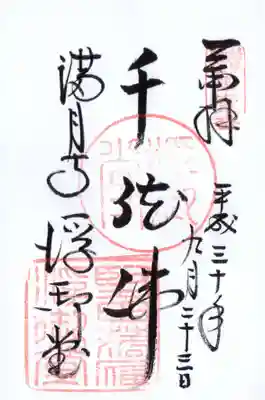 奉拝
平成三十年
九月二十三日
千体佛
満月寺
浮御堂